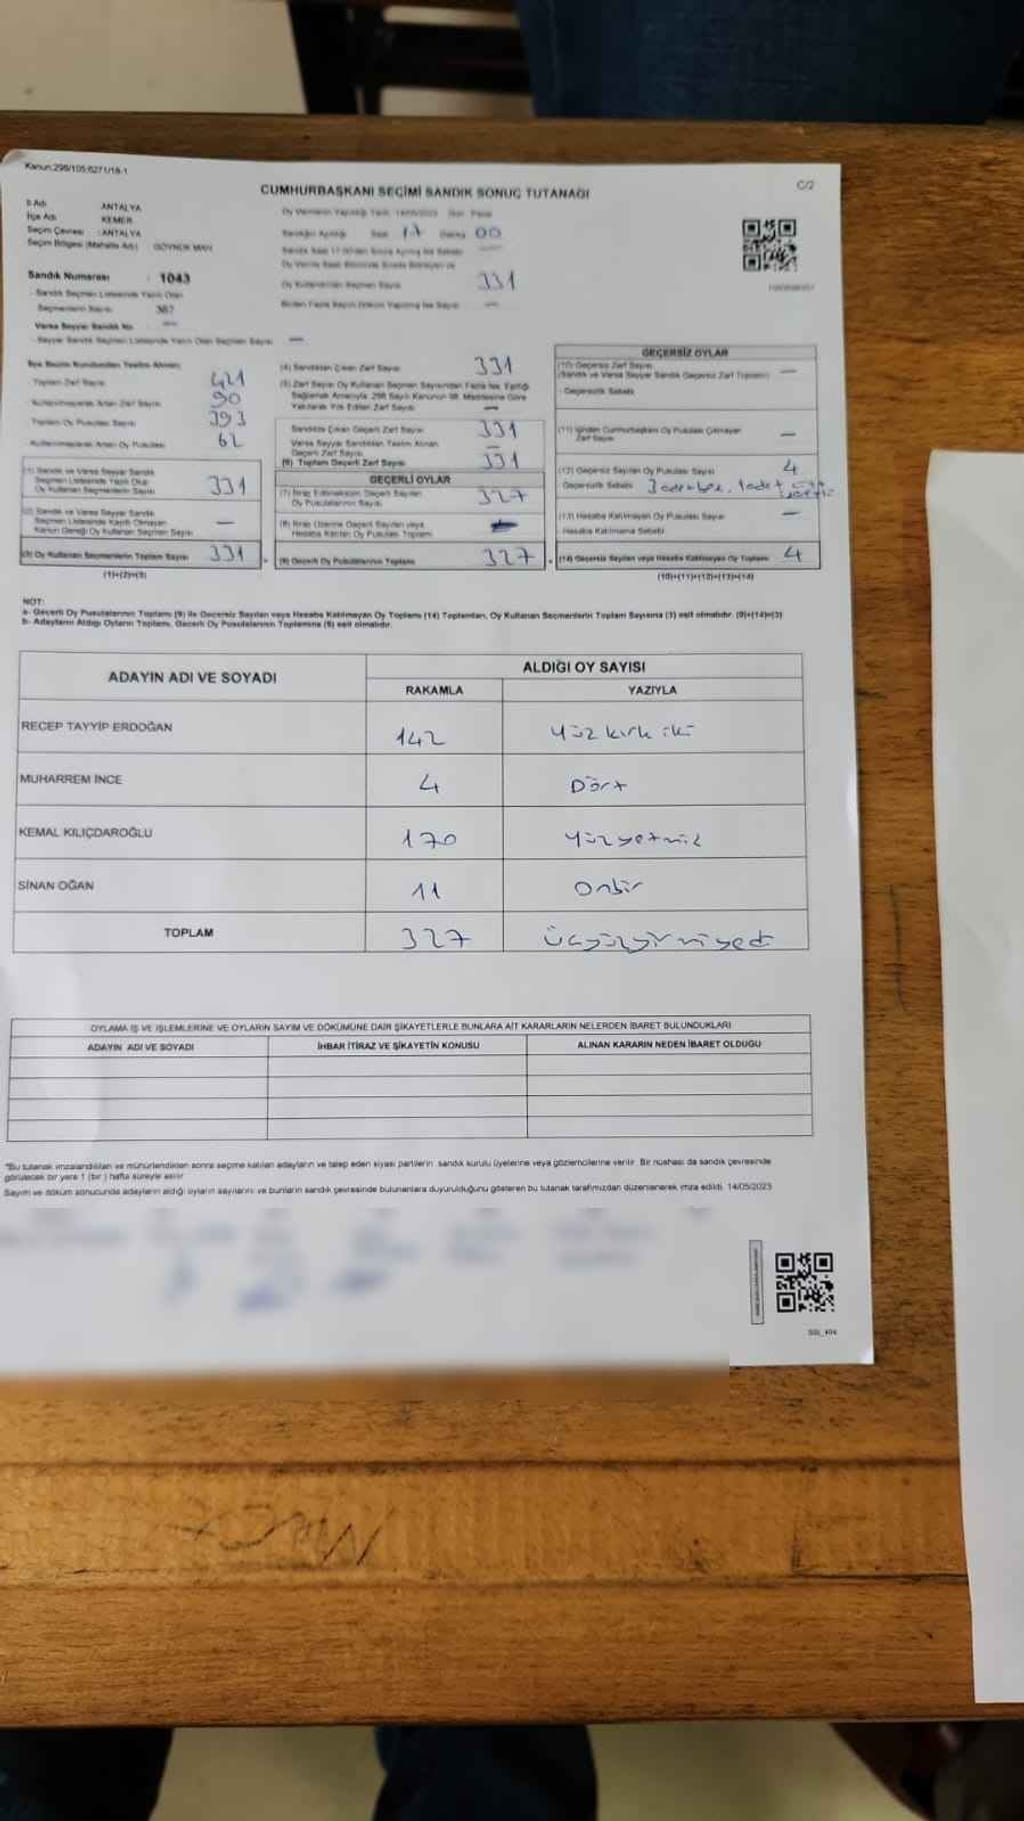 Kanun:298/105;6271/18-1
CUMHURBAŞKANI SEÇİMİ SANDIK SONUÇ TUTANAĞI
C/2
İl Adı ANTALYA
İlçe Adı KEMER
Seçim Çevresi : ANTALYA
Seçim Bölgesi (Mahalle Adı) GÖYNÜK MAH.
Oy Vermenin Yapıldığı Tarih 14/05/2023 Gün Pazar
Sandığın Açıldığı Saat 17 Dakika 00
Sandık Numarası : 1043
Sandık Seçmen Listesinde Yazılı Olan
Seçmenlerin Sayısı 387
Varsa Seyyar Sandık No —
Seyyar Sandık Seçmen Listesinde Yazılı Olan Seçmen Sayısı —
Oy Kullanan Seçmen Sayısı 331
Birden Fazla Sayım Döküm Yapılmış İse Sayısı —
İlçe Seçim Kurulundan Teslim Alınan
Toplam Zarf Sayısı 421
Kullanılmayarak Artan Zarf Sayısı 90
Toplam Oy Pusulası Sayısı 393
Kullanılmayarak Artan Oy Pusulası 62
(1) Sandık ve Varsa Seyyar Sandık
Seçmen Listesinde Yazılı Olup
Oy Kullanan Seçmenlerin Sayısı 331
(2) Sandık ve Varsa Seyyar Sandık
Seçmen Listesinde Kayıtlı Olmayan
Kanun Gereği Oy Kullanan Seçmen Sayısı —
(3) Oy Kullanan Seçmenlerin Toplam Sayısı 331
(1)+(2)=(3)
(4) Sandıktan Çıkan Zarf Sayısı 331
(5) Zarf Sayısı Oy Kullanan Seçmen Sayısından Fazla İse, Eşitliği
Sağlamak Amacıyla 298 Sayılı Kanunun 98. Maddesine Göre
Yakılarak Yok Edilen Zarf Sayısı —
Sandıkta Çıkan Geçerli Zarf Sayısı 331
Varsa Seyyar Sandıktan Teslim Alınan
Geçerli Zarf Sayısı —
(6) Toplam Geçerli Zarf Sayısı 331
GEÇERLİ OYLAR
(7) İtiraz Edilmeksizin Geçerli Sayılan
Oy Pusulalarının Sayısı 327
(8) İtiraz Üzerine Geçerli Sayılan veya
Hesaba Katılan Oy Pusulası Toplamı
(9) Geçerli Oy Pusulalarının Toplamı 327
GEÇERSİZ OYLAR
(10) Geçersiz Zarf Sayısı
(Sandık ve Varsa Seyyar Sandık Geçersiz Zarf Toplamı) —
Geçersizlik Sebebi
(11) İçinden Cumhurbaşkanı Oy Pusulası Çıkmayan
Zarf Sayısı —
(12) Geçersiz Sayılan Oy Pusulası Sayısı 4
Geçersizlik Sebebi
(13) Hesaba Katılmayan Oy Pusulası Sayısı —
Hesaba Katılmama Sebebi
(14) Geçersiz Sayılan veya Hesaba Katılmayan Oy Toplamı 4
(10)+(11)+(12)+(13)=(14)
NOT:
a- Geçerli Oy Pusulalarının Toplamı (9) ile Geçersiz Sayılan veya Hesaba Katılmayan Oy Toplamı (14) Toplamları, Oy Kullanan Seçmenlerin Toplam Sayısına (3) eşit olmalıdır. (9)+(14)=(3)
b- Adayların Aldığı Oyların Toplamı, Geçerli Oy Pusulalarının Toplamına (9) eşit olmalıdır.
ADAYIN ADI VE SOYADI ALDIĞI OY SAYISI
RAKAMLA YAZIYLA
RECEP TAYYİP ERDOĞAN 142 Yüz kırk iki
MUHARREM İNCE 4 Dört
KEMAL KILIÇDAROĞLU 170 Yüzyetmiş
SİNAN OĞAN 11 Onbir
TOPLAM 327 Üçyüzyirmiyedi
OYLAMA İŞ VE İŞLEMLERİNE VE OYLARIN SAYIM VE DÖKÜMÜNE DAİR ŞİKAYETLERLE BUNLARA AİT KARARLARIN NELERDEN İBARET BULUNDUKLARI
ADAYIN ADI VE SOYADI İHBAR İTİRAZ VE ŞİKAYETİN KONUSU ALINAN KARARIN NEDEN İBARET OLDUĞU
"Bu tutanak imzalandıktan ve mühürlendikten sonra seçime katılan adayların ve talep eden siyasi partilerin sandık kurulu üyelerine veya gözlemcilerine verilir. Bir nüshası da sandık çevresinde
görülecek bir yere 1 (bir) hafta süreyle asılır
Sayım ve döküm sonucunda adayların aldığı oyların sayılarını ve bunların sandık çevresinde bulunanlara duyurulduğunu gösteren bu tutanak tarafımızdan düzenlenerek imza edildi. 14/05/2023